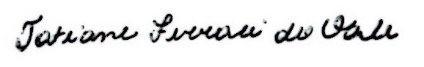 Tatiane Ferrari do Vale